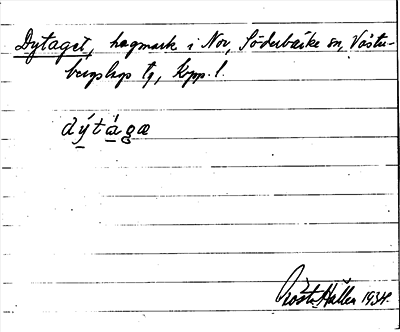 Dytaget, hagmark i Nor, Söderbärke sn, Väster-
bergslags tg, Kopp. l.
dýtágæ
Hallén 1934